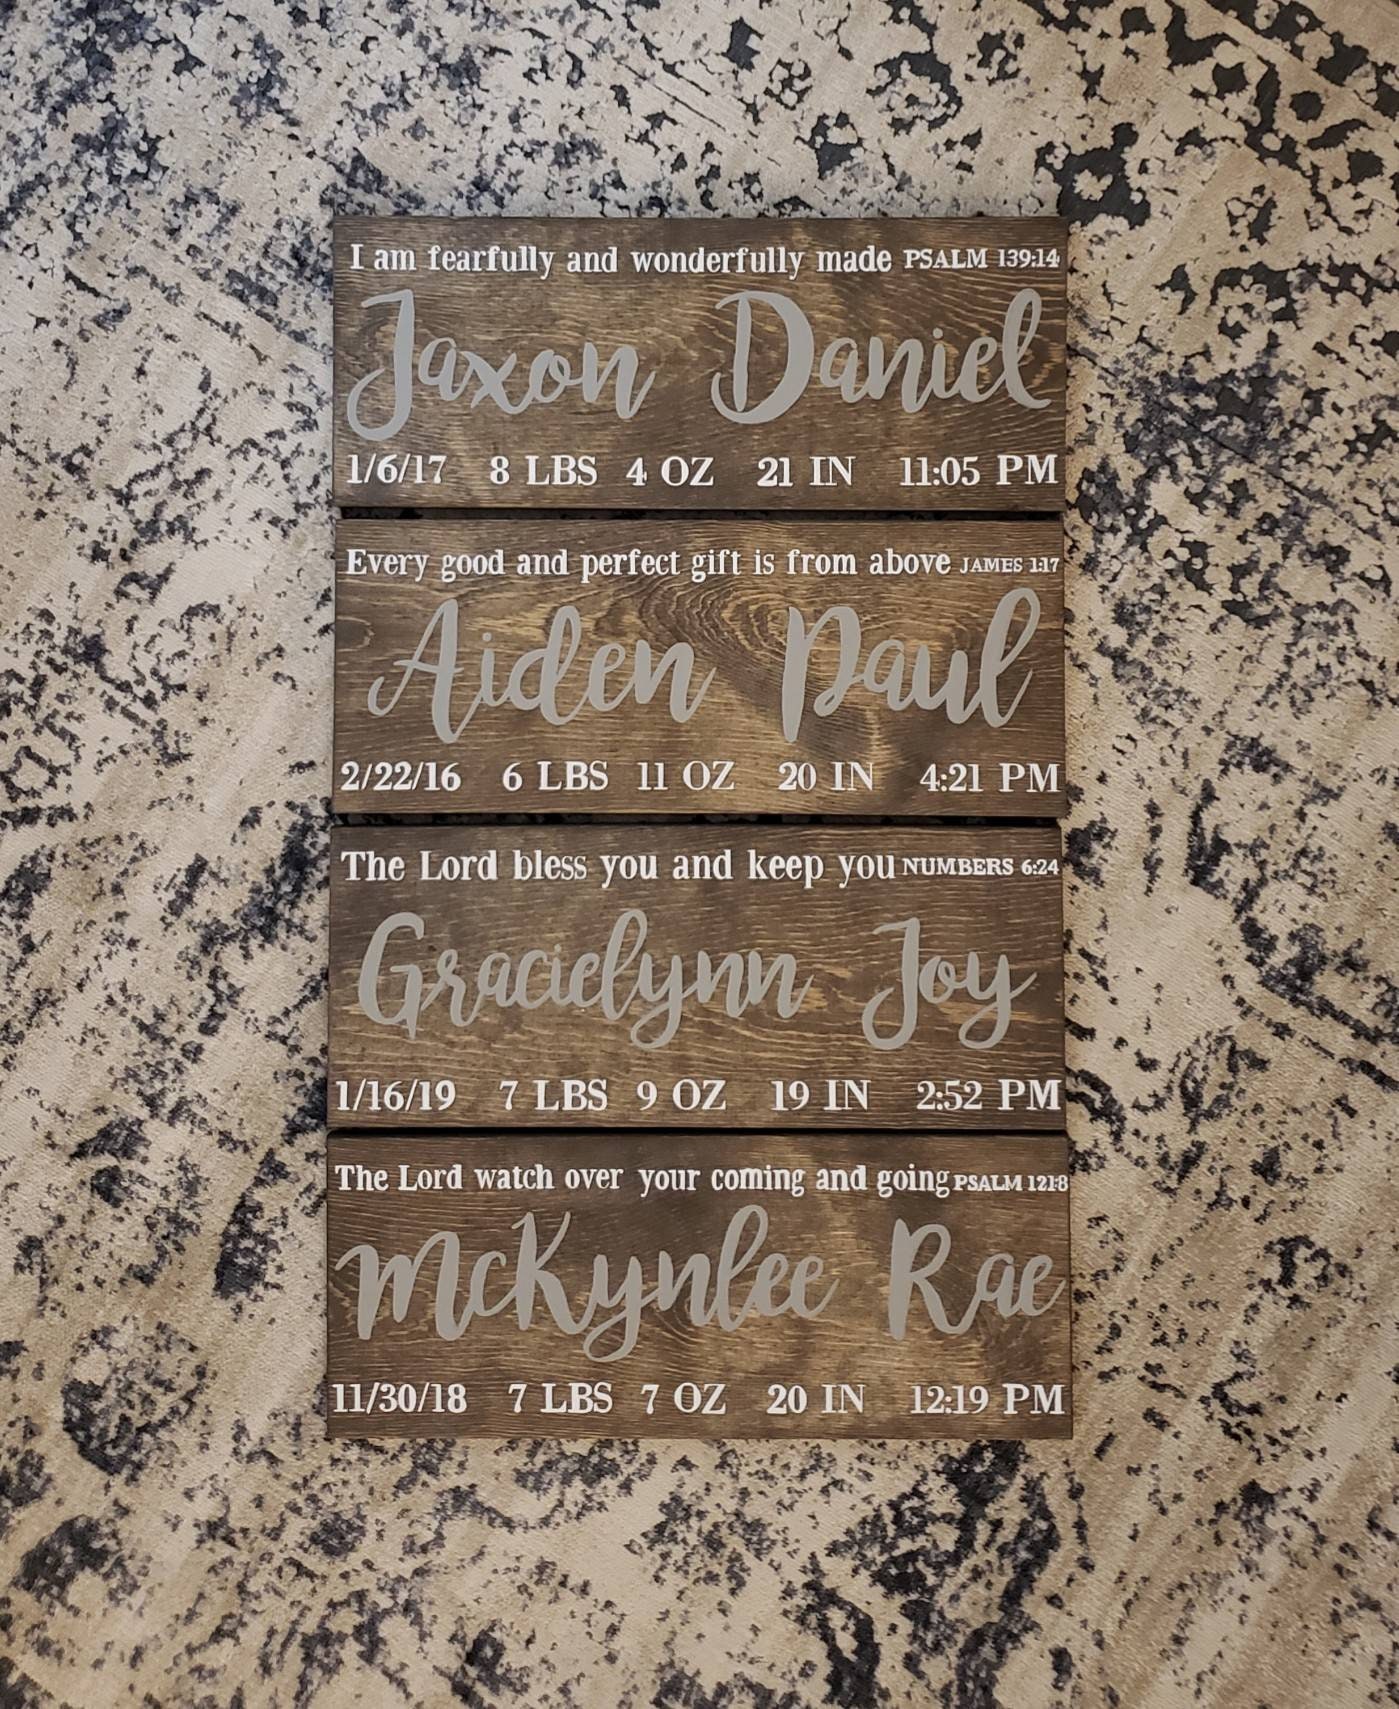 I am fearfully and wonderfully made PSALM 139:14
Jaxon Daniel
1/6/17 8 LBS 4 OZ 21 IN 11:05 PM
Every good and perfect gift is from above JAMES 1:17
Aiden Paul
2/22/16 6 LBS 11 OZ 20 IN 4:21 PM
The Lord bless you and keep you NUMBERS 6:24
Gracielynn Joy
1/16/19 7 LBS 9 OZ 19 IN 2:52 PM
The Lord watch over your coming and going PSALM 121:8
McKynlee Rae
11/30/18 7 LBS 7 OZ 20 IN 12:19 PM